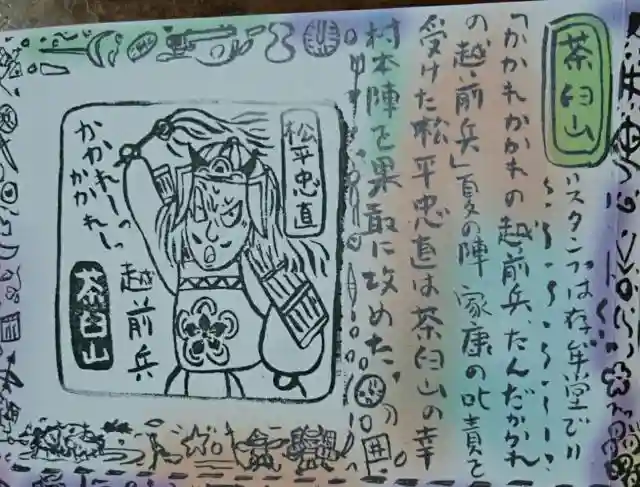 茶臼山
〃スタンプは存牟堂で〃
「かかれかかれの越前兵、たんだかかれ
の越前兵」夏の陣 家康の叱責を
受けた松平忠直は茶臼山の幸
村本陣を果敢に攻めた。
松平忠直
かかれーっ
かかれーっ
越前兵
茶臼山